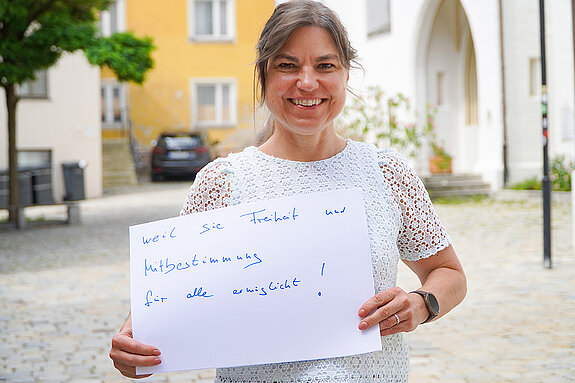 weil sie Freiheit und
Mitbestimmung
für alle ermöglicht !